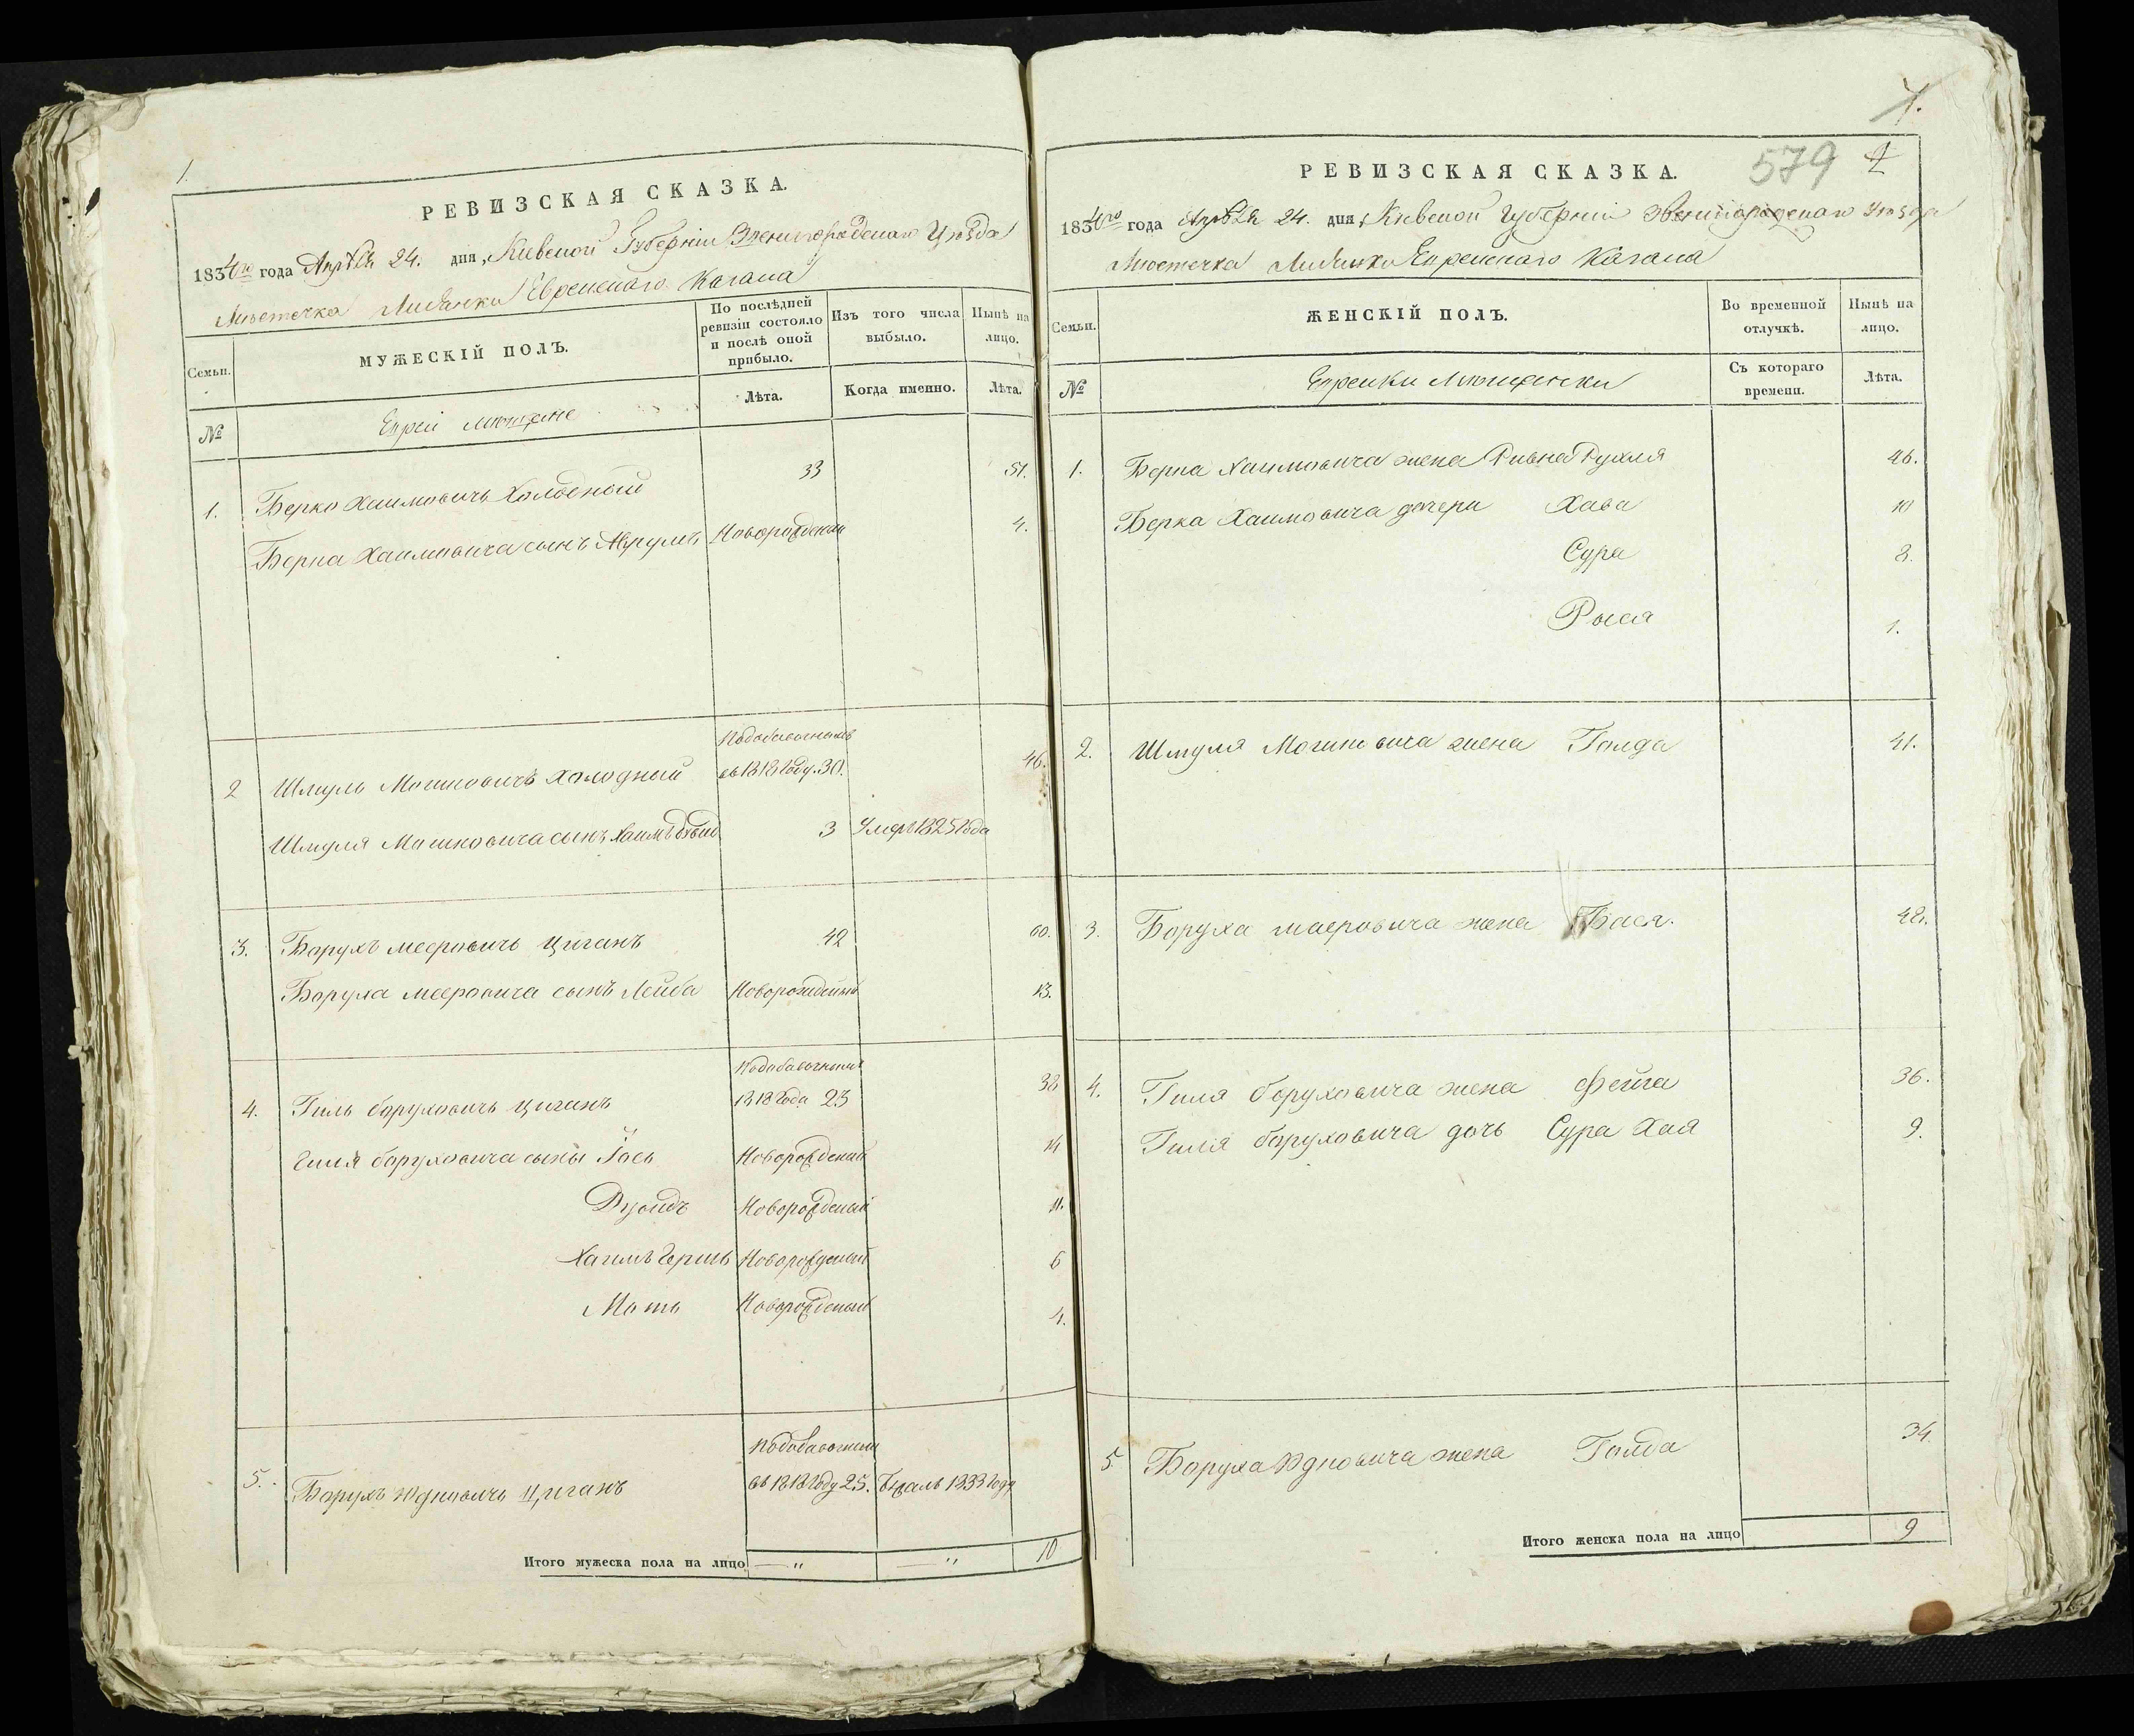 1.
РЕВИЗСКАЯ СКАЗКА.
1834го года Апрѣля 24. дня, Кіевской Губерніи Звенигородскаго Уѣзда
Мѣстечка Лисянки Еврейскаго Кагала
Семьи.
МУЖЕСКІЙ ПОЛЪ.
По послѣдней ревизіи состояло и послѣ оной прибыло.
Изъ того числа выбыло.
Нынѣ на лицо.
№
Евреи мещане
Лѣта.
Когда именно.
Лѣта.
1. Берко Хаимовичь Холодный 33 51.
Берка Хаимовича сынъ Аврумъ Новорожденый 4.
2 Шмуль Мошковичъ Холодный въ 1818 Году. 30. 46.
Шмуля Мошковича сынъ Хаимъ 3 Умеръ 1825 Года
3. Борухъ Мееровичь Циганъ 42 60.
Боруха Мееровича сынъ Лейба Новорожденый 13.
4. Гиль Боруховичь Циганъ 1818 Года 23 38
Гиля Боруховича сыны Іось Новорожденый 14
Дувидъ Новорожденый 11.
Хаимъ Гершъ Новорожденый 6
Новорожденый 4.
5. Борухъ Юдковичь Циганъ въ 1818 Году 25. Бежалъ 1833 Года
Итого мужеска пола на лицо — „ — „ 10
1.
579 2
РЕВИЗСКАЯ СКАЗКА.
1834го года Апрѣля 24. дня, Кіевской Губерніи Звенигородскаго Уѣзда
Мѣстечка Лисянки Еврейскаго Кагала
Семьи.
ЖЕНСКІЙ ПОЛЪ.
Во временной отлучкѣ.
Нынѣ на лицо.
№
Еврейки Мѣщанки
Съ котораго времени.
Лѣта.
1. Берка Хаимовича жена Ривка Рухля 46.
Берка Хаимовича дочери Хава 10
Сура 8.
Рося 1.
2. Шмуля Мошковича жена Голда 41.
3. Боруха Маеровича жена Бася. 48.
4. Гиля Боруховича жена Фейга 36.
Гиля Боруховича дочь Сура Хая 9.
5 Боруха Юдковича жена Голда 34.
Итого женска пола на лицо 9